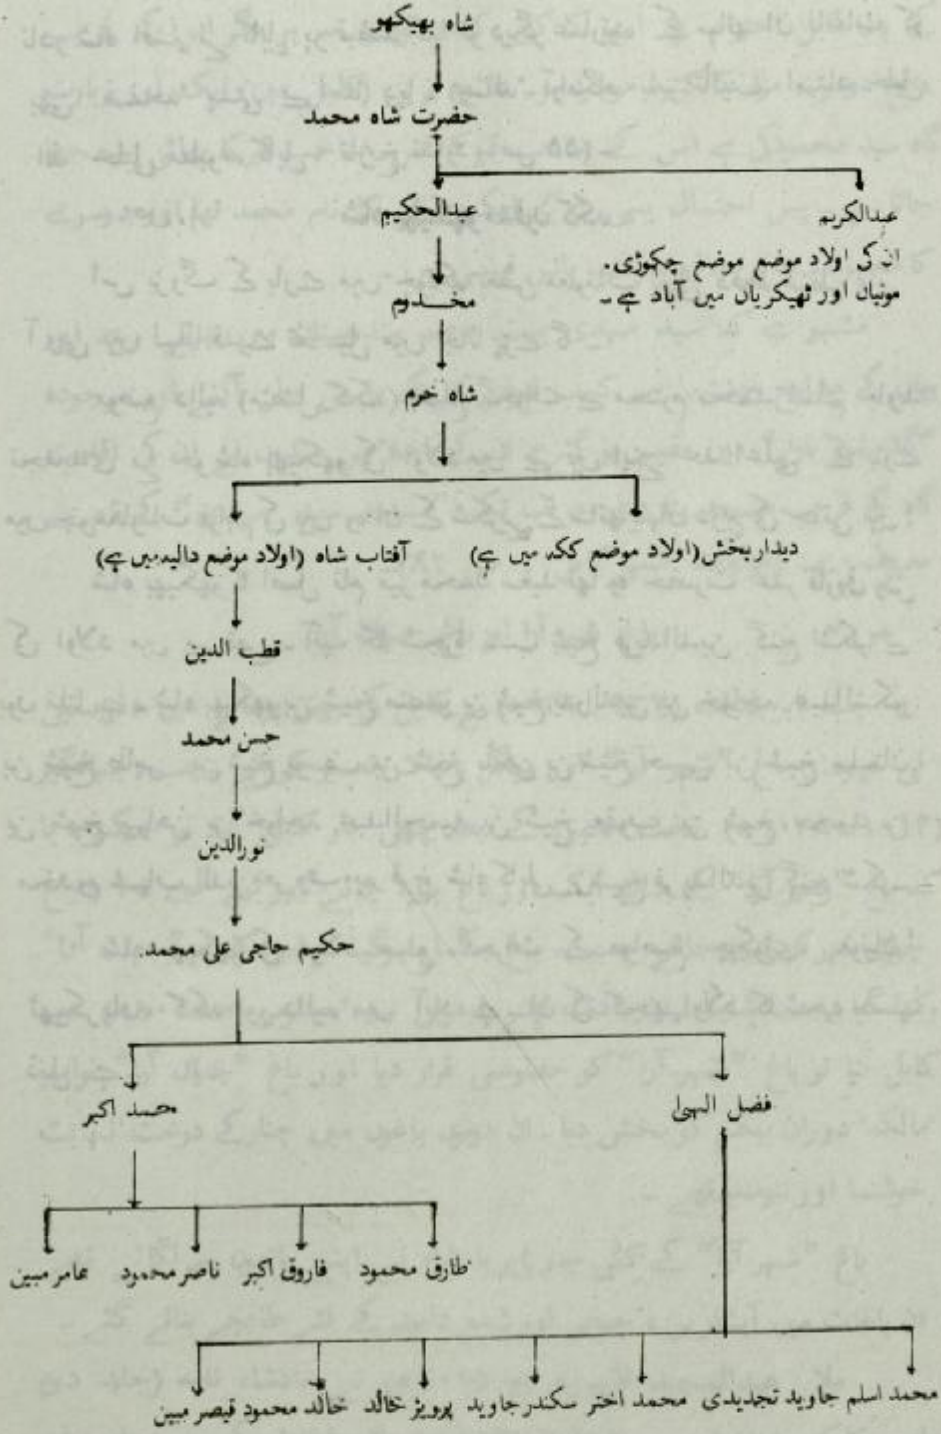 شاہ بھیکھو
حضرت شاہ محمد
عبدالکریم
عبدالحکیم
ان کی اولاد موضع موضع چکوڑی۔
مونیاں اور ٹھیکریاں میں آباد ہے۔
مخدوم
شاہ خرم
دیدار بخش (اولاد موضع ککہ میں ہے)
آفتاب شاہ (اولاد موضع دالیہ میں ہے)
قطب الدین
حسن محمد
نورالدین
حکیم حاجی علی محمد۔
فضل الہیٰ
محمد اکبر
طارق محمود
فاروق اکبر
ناصر محمود
عامر مبین
محمد اسلم جاوید تجدیدی
محمد اختر
سکندر جاوید
پرویز خالد
خالد محمود
قیصر مبین